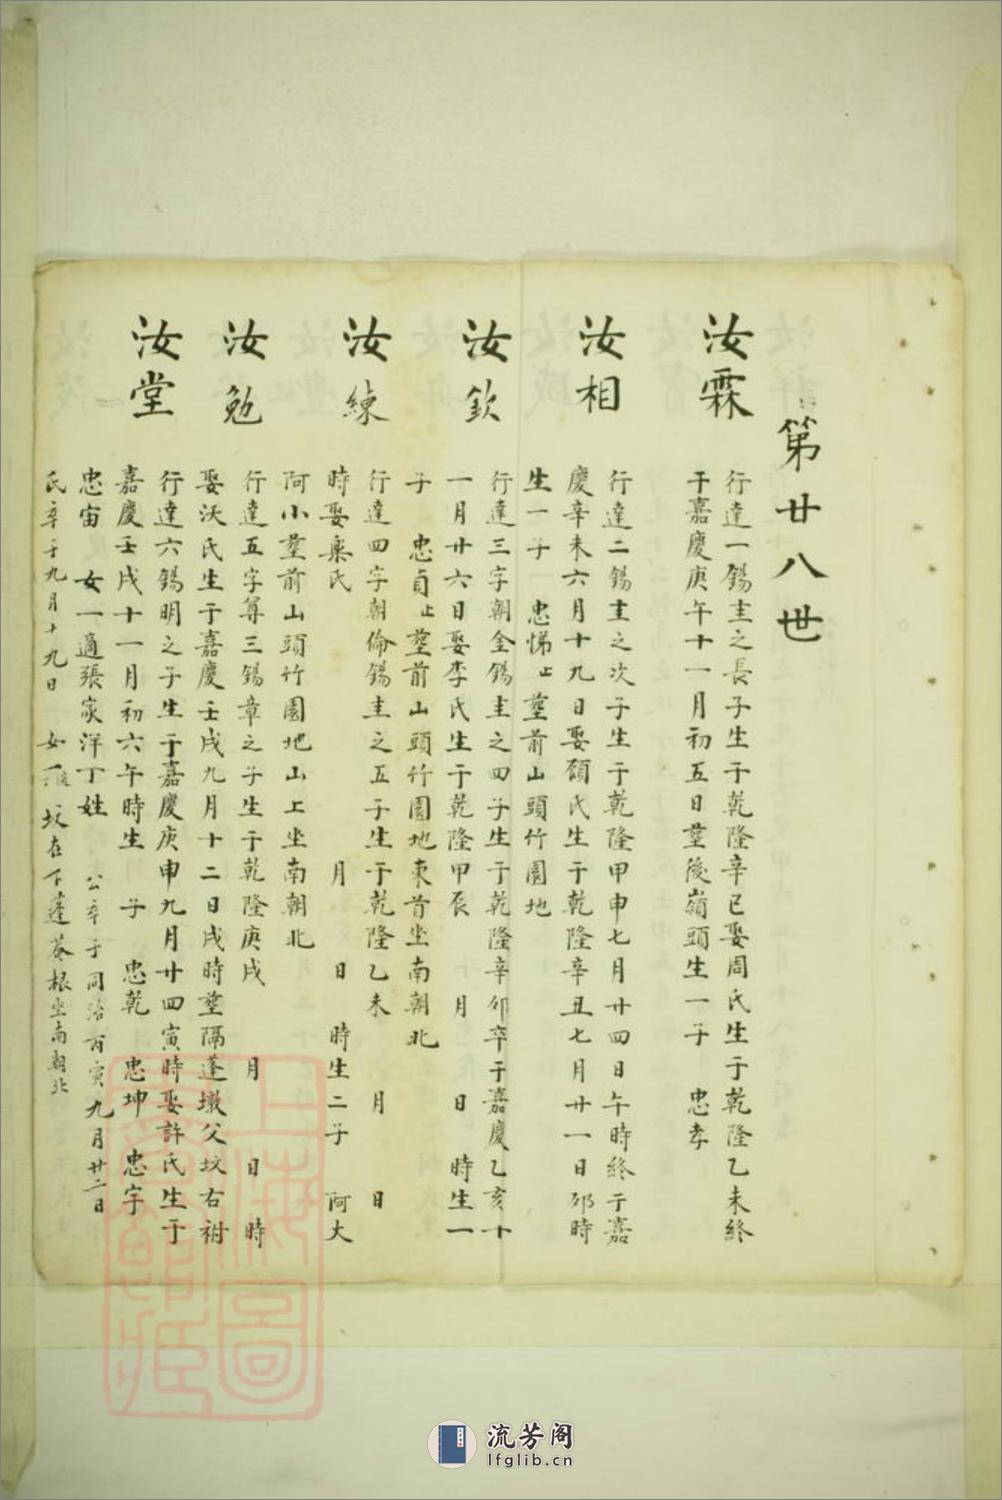 第廿八世
汝霖
行達一錫圭之長子生于乾隆辛巳娶周氏生于乾隆乙未終
于嘉慶庚午十一月初五日塟後嶺頭生一子 忠孝
汝相
行達二錫圭之次子生于乾隆甲申七月廿四日午時終于嘉
慶辛未六月十九日娶顧氏生于乾隆辛丑七月廿一日卯時
生一子 忠悌止塟前山頭竹園地
汝欽
行達三字朝金錫圭之四子生于乾隆辛卯卒于嘉慶乙亥十
一月廿六日娶李氏生于乾隆甲辰 月 日 時生一
子 忠貞止塟前山頭竹園地東首坐南朝北
汝練
行達四字朝倫錫圭之五子生于乾隆乙未 月 日
時娶氏 月 日 時生二子 阿大
阿小塟前山頭竹園地山上坐南朝北
汝勉
行達五字尊三錫章之子生于乾隆庚戌 月 日 時
娶沃氏生于嘉慶壬戌九月十二日戌時塟隔蓬墩父坟右祔
汝堂
行達六錫明之子生于嘉慶庚申九月廿四寅時娶許氏生于
嘉慶壬戌十一月初六午時生 子 忠乾 忠坤 忠字
忠宙 女一適張家洋丁姓 公卒于同治丙寅九月廿二日
氏卒于九月十九日 女 坟在下蓬根坐南朝北
上海圖
流芳阁
lfglib.cn